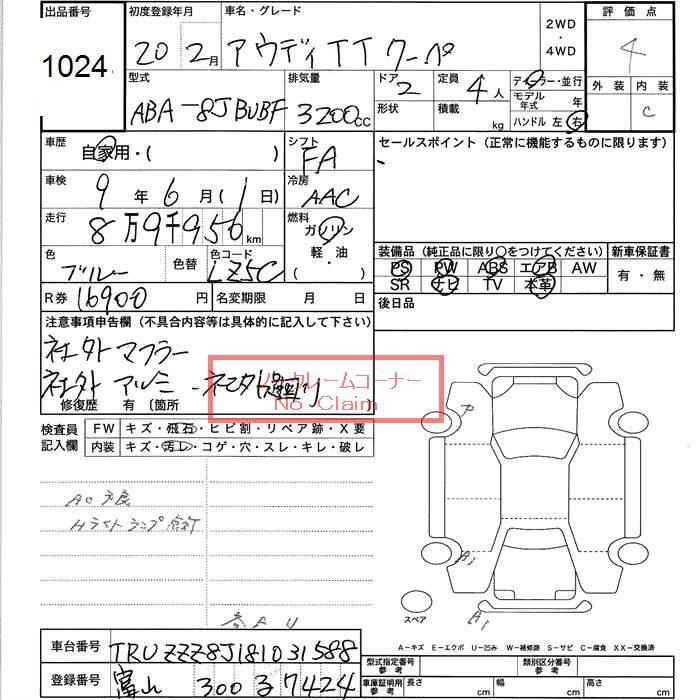 出品番号 初度登録年月 車名・グレード 2WD・4WD 評価点
1024 20 2月 アウディTT クーペ 4
型式 排気量 ドア 定員 ディーラー・並行 外装 内装
ABA-8JBUBF 3200cc 2 4人 モデル年式 年 C
形状 積載 kg ハンドル 左 右
車歴 自家用・( ) シフト FA セールスポイント (正常に機能するものに限ります)
車検 9年6月(1日) 冷房 AAC
走行 8万9千956km 燃料 ガソリン
軽・油
色 ブルー 色替 色コード LZ5C
装備品 (純正品に限り○をつけてください) 新車保証書
PS PW ABS エアB AW 有・無
SR ナビ TV 本革
R券 16900円 名変期限 月 日 後日品
注意事項申告欄 (不具合内容等は具体的に記入して下さい)
社外マフラー
社外アルミ
ノークレームコーナー
No Claim
修復歴 有 〔箇所
検査員記入欄 FW キズ・飛石・ヒビ割・リペア跡・X要
内装 キズ・汚レ・コゲ・穴・スレ・キレ・破レ
AC不良
Hライトランプ点灯
スペア
A1
A−キズ E−エクボ U−凹み W−補修跡 S−サビ C−腐食 XX−交換済
車台番号 TRUZZZ8J181031588
型式指定番号 参考 類別区分番号 参考
登録番号 富山 300 る 7424
車庫証明用 参考 長さ cm 幅 cm 高さ cm